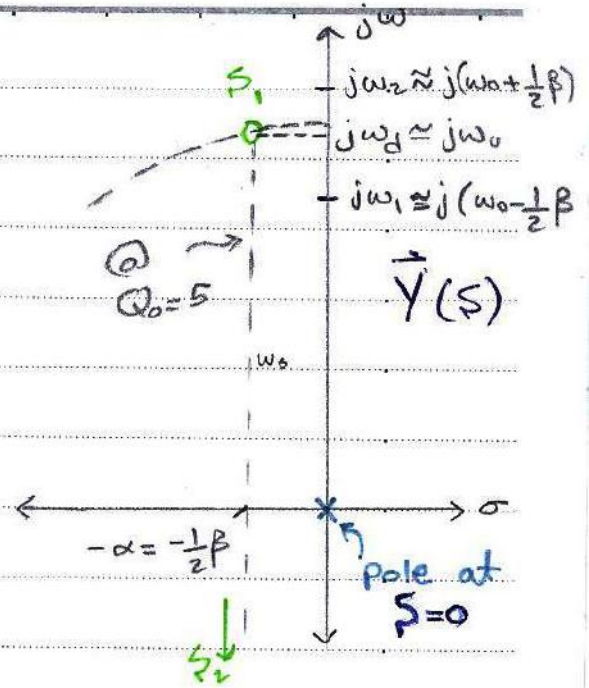 jω
S₁
jω₂ ≈ j(ω₀+½β)
jω_d ≃ jω₀
jω₁ ≅ j(ω₀-½β
@
Q₀=5
Y⃗(S)
ω₀
σ
-α = -½β
pole at
S=0
S₂